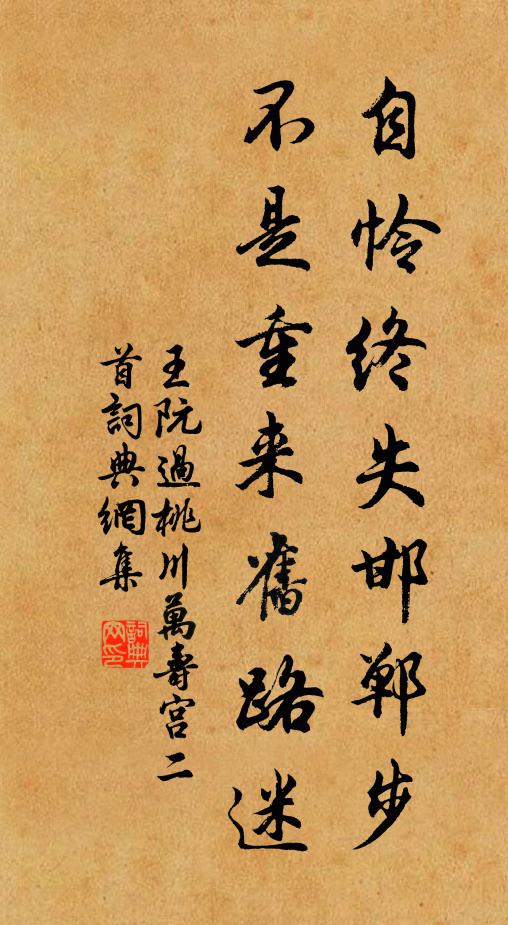 自怜终失邯郸步
不是重来舊路迷
王阮過桃川萬壽宮二
首詞典網集
詞典
网印